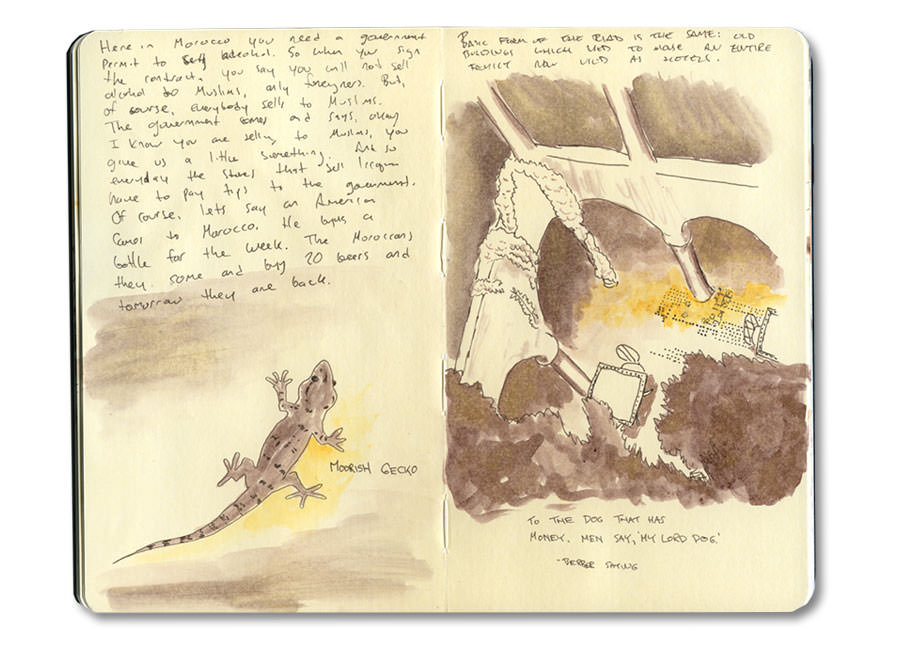 Here in Morocco you need a government
permit to sell alcohol. So when you sign
the contract, you say you will not sell
alcohol to Muslims, only foreigners. But,
of course, everybody sells to Muslims.
The government comes and says, okay
I know you are selling to Muslims, you
give us a little something. And so
everyday the stores that sell liquor
have to pay tips to the government.
Of course, lets say an American
comes to Morocco. He buys a
bottle for the week. The Moroccans
they come and buy 20 beers and
tomorrow they are back.
MOORISH GECKO
BASIC FORM OF THE RIAD IS THE SAME: OLD
BUILDINGS WHICH USED TO HOUSE AN ENTIRE
FAMILY NOW USED AS HOTELS.
TO THE DOG THAT HAS
MONEY, MEN SAY, 'MY LORD DOG.'
-BERBER SAYING